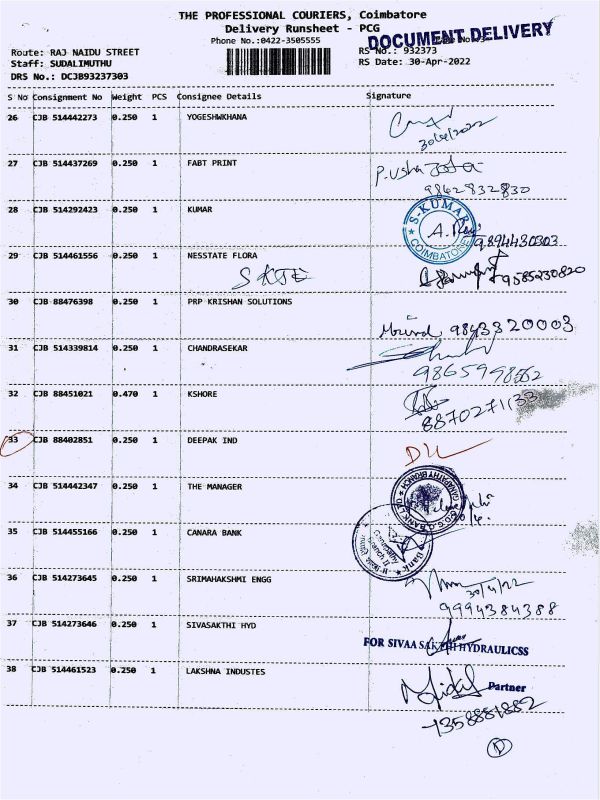 THE PROFESSIONAL COURIERS, Coimbatore
Delivery Runsheet - PCG
DOCUMENT DELIVERY
Phone No.:0422-3505555
Route: RAJ NAIDU STREET
RS No.: 932373
Staff: SUDALIMUTHU
RS Date: 30-Apr-2022
DRS No.: DCJB93237303
S No Consignment No Weight PCS Consignee Details Signature
26 CJB 514442273 0.250 1 YOGESHWKHANA
30/4/2022
27 CJB 514437269 0.250 1 FABT PRINT
P. Usha
9842832830
28 CJB 514292423 0.250 1 KUMAR
S-KUMAR
COIMBATORE
9894430303
29 CJB 514461556 0.250 1 NESSTATE FLORA
9585230820
30 CJB 88476398 0.250 1 PRP KRISHAN SOLUTIONS
9843320003
31 CJB 514339814 0.250 1 CHANDRASEKAR
32 CJB 88451021 0.470 1 KSHORE
8870271133
33 CJB 88402851 0.250 1 DEEPAK IND
DL
34 CJB 514442347 0.250 1 THE MANAGER
GANAPATHY BRANCH
35 CJB 514455166 0.250 1 CANARA BANK
36 CJB 514273645 0.250 1 SRIMAHAKSHMI ENGG
30/4/22
9994384388
37 CJB 514273646 0.250 1 SIVASAKTHI HYD
FOR SIVAA SAKTHI HYDRAULICSS
38 CJB 514461523 0.250 1 LAKSHNA INDUSTES
Partner